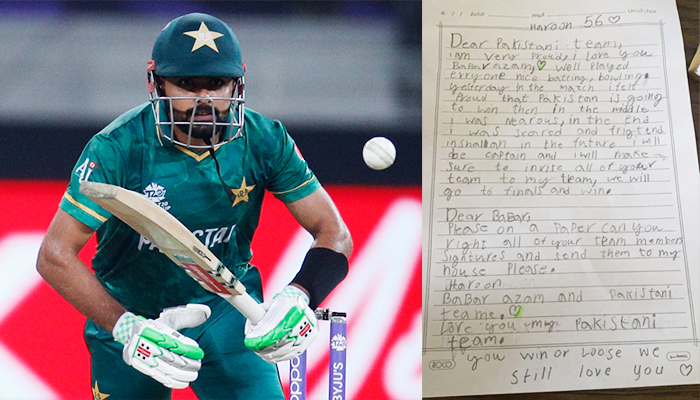 Ai
PAKISTAN
BYJU'S
HAROON 56 ♡
Dear Pakistani team,
I am very Proud, I love you
BaBar azam, ♡ Well Played
erry one nice batting, bowling.
yesterday in the match i felt
Proud that Pakistan is going
to win then in the middle
I was nearous, in the end
i was scared and frigtend
inshallah in the future I will
be captain and I will make
sure to invite all of your
team to my team, we will
go to finals and win.
Dear BaBar,
Please on a Paper can you
right all of your team members
signtures and send them to my
house Please.
Haroon
BaBar azam and Pakistani
teame. ♡
Love you my Pakistani
team.
you win or loose we
still love you ♡